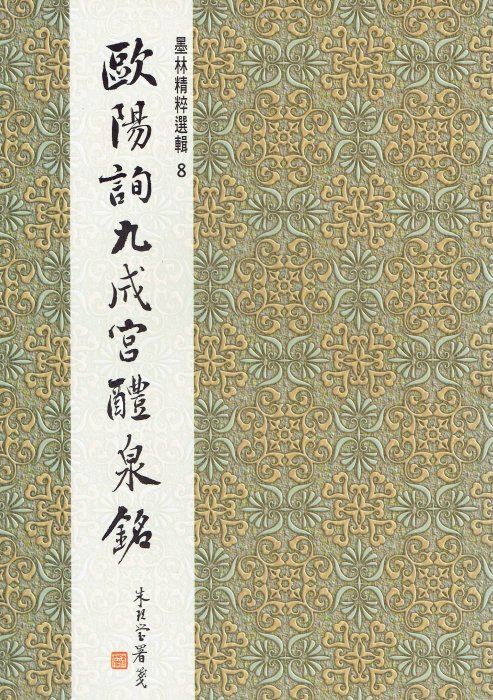 墨林精粹選輯 8
歐陽詢九成宮醴泉銘
朱玖瑩署箋